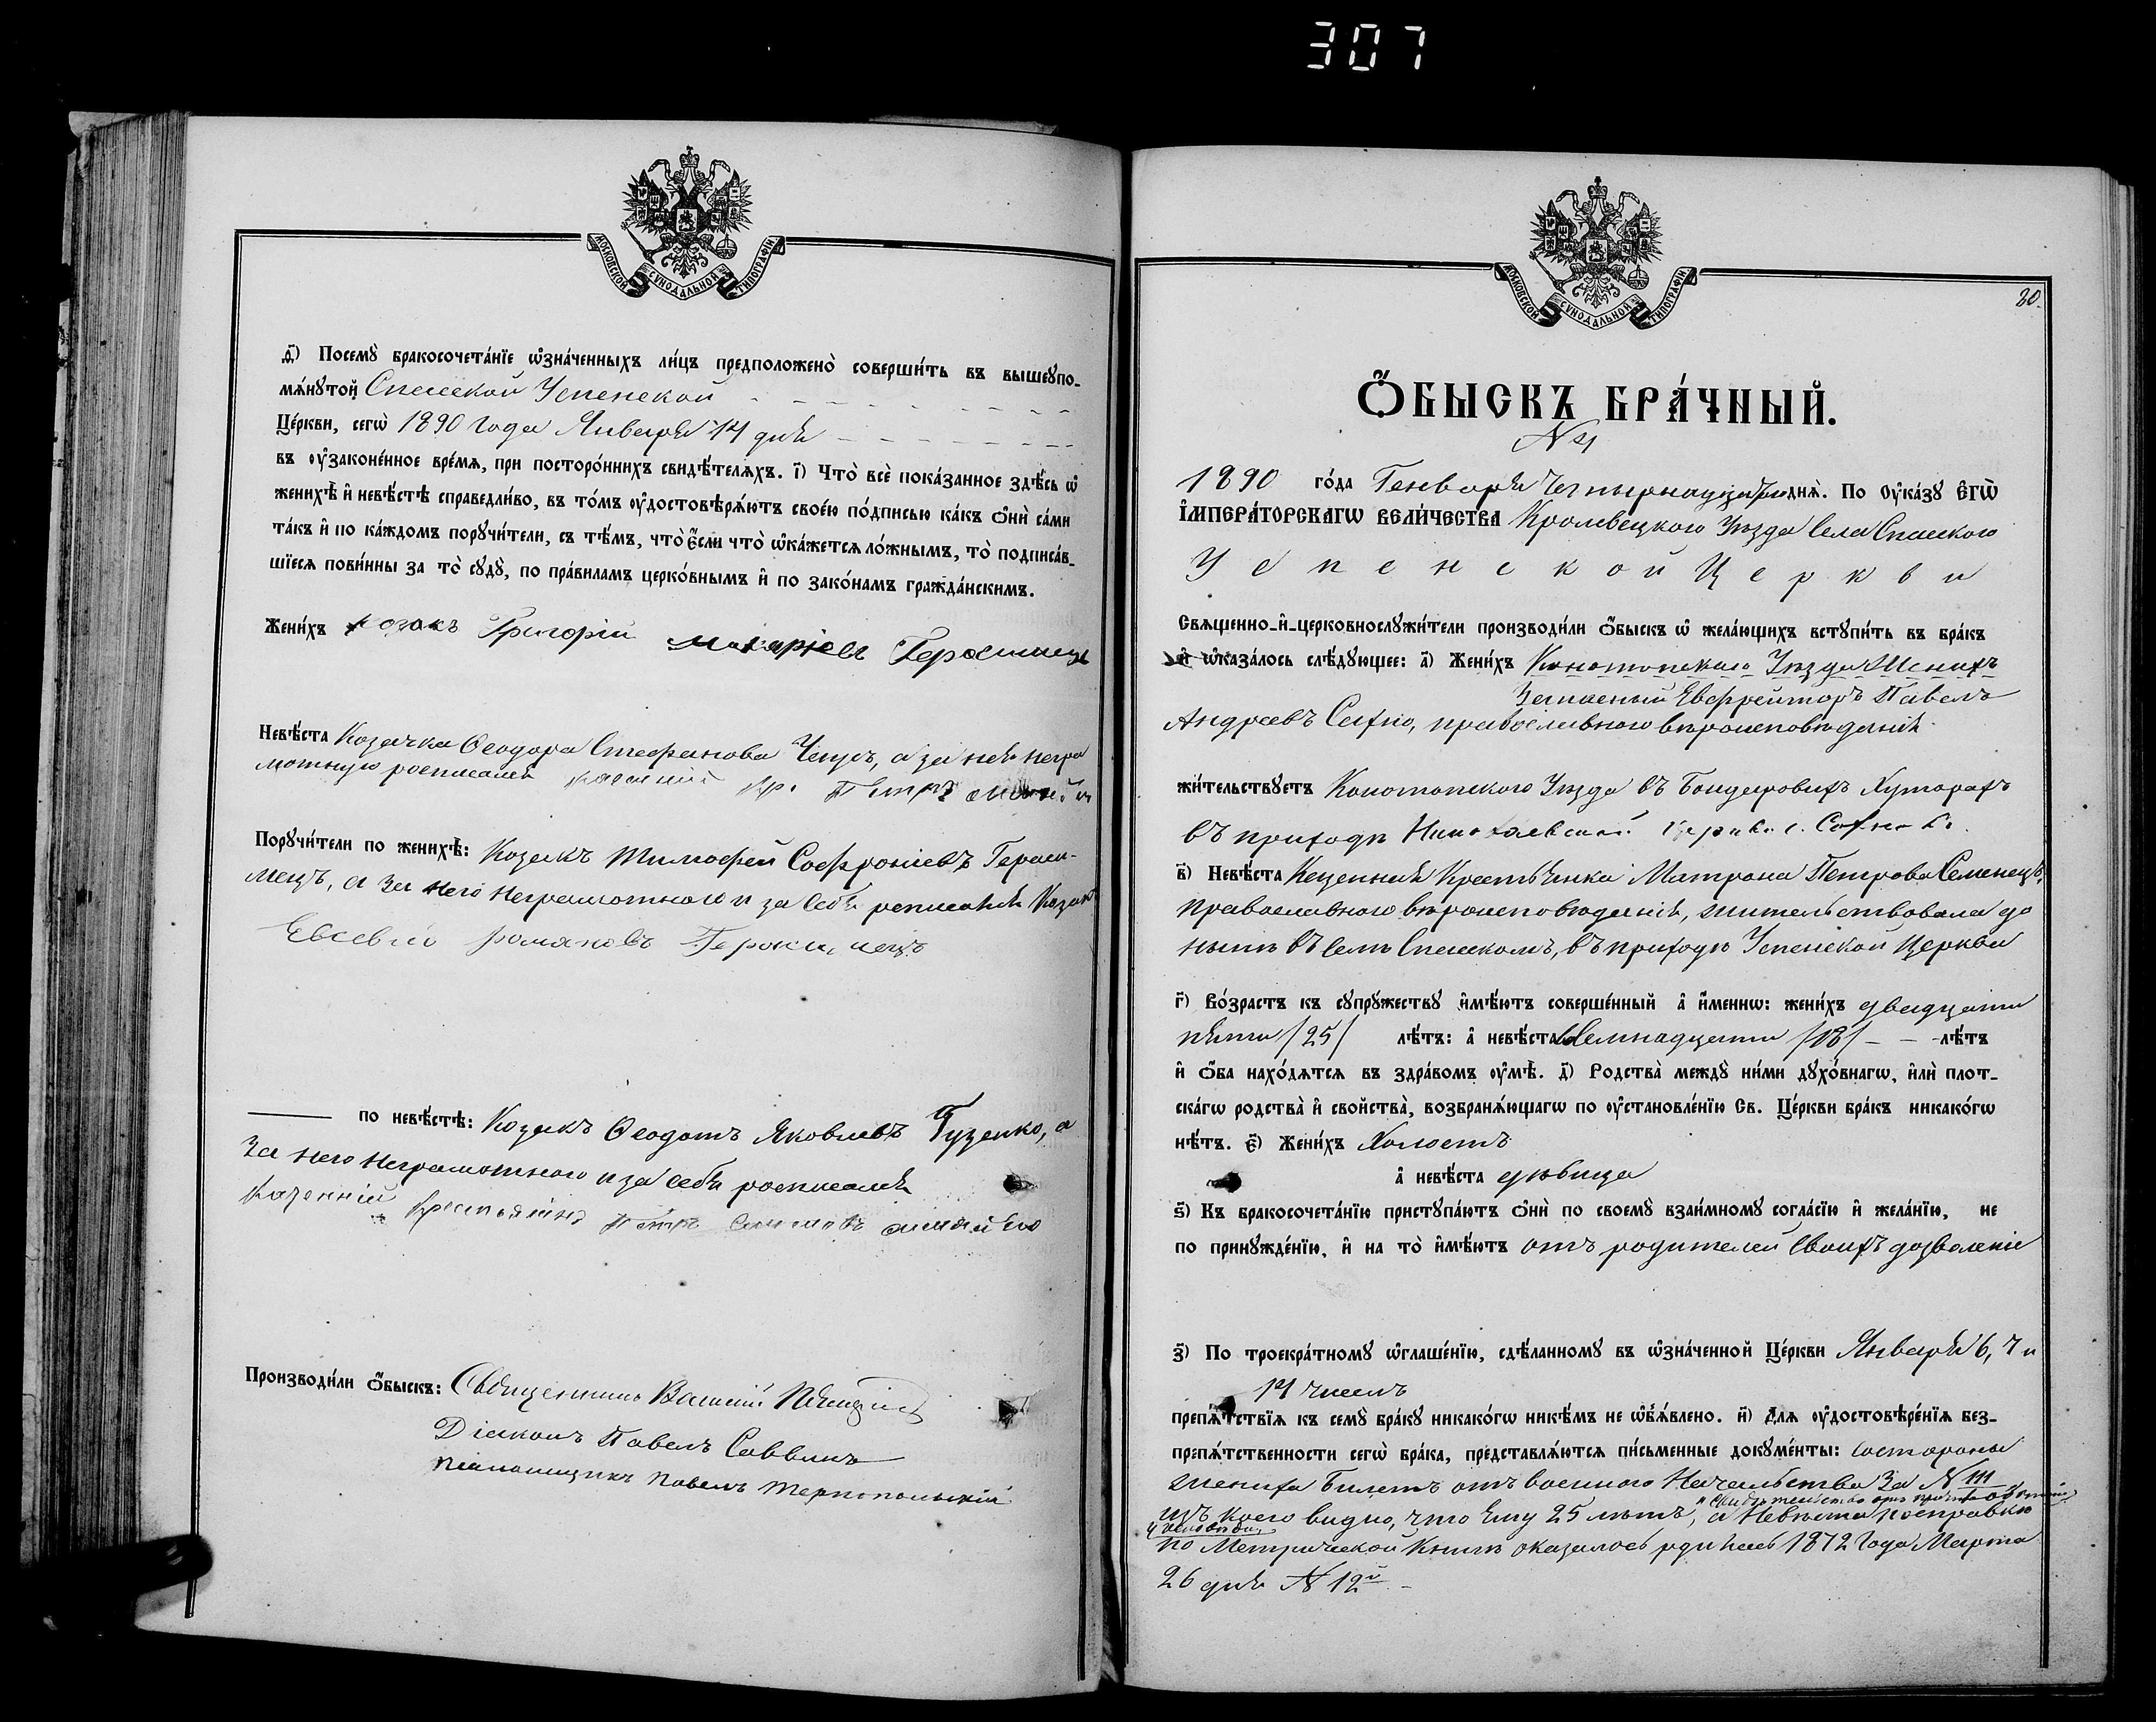 307
МОСКОВСКОЙ СѴНОДАЛЬНОЙ ТИПОГРАФІИ
ѳ҃) Посемꙋ̀ бракосочета́нїе ѡ҆зна́ченныхъ ли́цъ предположено̀ соверши́ть въ вышеꙋпо-
мѧ́нꙋтой Спасской Успенской
Це́ркви, сегѡ̀ 1890 года Января 14 дня
въ ᲂу҆законе́нное вре́мѧ, при посторо́ннихъ свидѣ́телѧхъ. і҃) Что̀ всѐ пока́занное здѣ́сь ѡ҆
женихѣ̀ и҆ невѣ́стѣ справедли́во, въ то́мъ ᲂу҆достовѣрѧ́ютъ свое́ю по́дписью ка́къ ѻ҆нѝ са́ми
та́къ и҆ по ка́ждомъ порꙋчи́тели, съ тѣ́мъ, что̀ є҆́сли что̀ ѡ҆ка́жетсѧ ло́жнымъ, то̀ подписа́в-
шїесѧ пови́нны за то̀ сꙋдꙋ̀, по пра́виламъ церко́внымъ и҆ по зако́намъ гражда́нскимъ.
Жени́хъ козакъ Григорій Макаріевъ Герасимецъ
Невѣ́ста Козачка Ѳеодора Стефанова Чаусъ, а за нея негра
мотную росписался казенний кр. Петръ
Порꙋчи́тели по женихѣ̀: Козакъ Тимофей Софроніевъ Гераси-
мецъ, а за него неграмотного и за себя росписался Козакъ
Евсевій романовъ Герасимецъ
по невѣ́стѣ: Козакъ Ѳеодотъ Яковлевъ Гузенко, а
за него неграмотного и за себя росписался
казенній крестьянинъ Петръ
Производи́ли ѻ҆́быскъ: Священникъ Василій
Діаконъ Павелъ Саввинъ
Псаломщикъ Павелъ Тернопольскій
МОСКОВСКОЙ СѴНОДАЛЬНОЙ ТИПОГРАФІИ
20.
Ѻ҆́БЫСКЪ БРА́ЧНЫЙ.
N 4
1890 го́да Генваря Четырнадцатаго днѧ̀. По ᲂу҆ка́зꙋ Є҆ГѠ̀
І҆МПЕРА́ТОРСКАГѠ ВЕЛИ́ЧЕСТВА Кролевецкого Уѣзда Села Спасского
Успенской Церкви
Свѧще́нно-и҆-церковнослꙋжи́тели производи́ли ѻ҆́быскъ ѡ҆ жела́ющихъ встꙋпи́ть въ бра́къ
и҆ ѡ҆каза́лось слѣ́дꙋющее: а҃) Жени́хъ Конотопского Уѣзда Женихъ
Запасный Ефрейторъ Павелъ
Андреевъ Сахно, православного вѣроисповѣданія.
жи́тельствꙋетъ Конотопского Уѣзда въ Бондаровихъ Хуторахъ
въ приходѣ Николаевской Церкви с.
в҃) Невѣ́ста Казенная Крестьянка Матрона Петрова Семенецъ,
православного вѣроисповѣданія, жительствовала до
нынѣ въ селѣ Спасскомъ, въ приходѣ Успенской Церкви
г҃) Во́зрастъ къ сꙋпрꙋ́жествꙋ и҆мѣ́ютъ соверше́нный а҆ и҆́меннѡ: жени́хъ двадцати
пяти /25/ лѣ́тъ: а҆ невѣ́ста Семнадцати /18/ лѣ́тъ
и҆ ѻ҆́ба нахо́дѧтсѧ въ здра́вомъ ᲂу҆мѣ̀. д҃) Родства̀ междꙋ̀ ни́ми дꙋхо́внагѡ, и҆лѝ плот-
ска́гѡ родства̀ и҆ свойства̀, возбранѧ́ющагѡ по ᲂу҆становле́нїю Св. Це́ркви бра́къ никако́гѡ
нѣ́тъ. є҃) Жени́хъ Холостъ
а҆ невѣ́ста дѣвица
ѕ҃) Къ бракосочета́нїю пристꙋпа́ютъ ѻ҆нѝ по своемꙋ̀ взаи́мномꙋ согла́сїю и҆ жела́нїю, не
по принꙋжде́нїю, и҆ на то̀ и҆мѣ́ютъ отъ родителей своихъ дозволеніе
з҃) По троекра́тномꙋ ѡ҆глаше́нїю, сдѣ́ланномꙋ въ ѡ҆зна́ченной Це́ркви Января 6, 7 и
14 числъ
препѧ́тствїѧ къ семꙋ̀ бра́кꙋ никако́гѡ никѣ́мъ не ѡ҆б̾ѧ́влено. и҃) Длѧ ᲂу҆достовѣре́нїѧ без-
препѧ́тственности сегѡ̀ бра́ка, представлѧ́ютсѧ пи́сьменные докꙋме́нты: со стороны
жениха Билетъ отъ военного Начальства за N 111
изъ коего видно, что ему 25 лѣтъ, а Невѣста по справкѣ
по Метрической Книгѣ оказалось родилась 1872 года Марта
26 дня N 12й